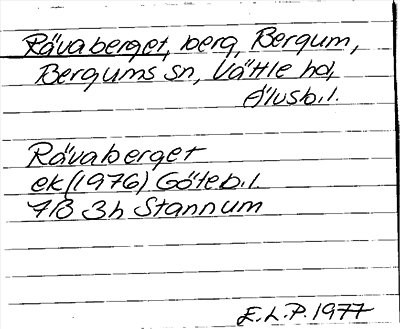 Rävaberget, berg, Bergum,
Bergums sn, Vättle hd,
Älvsb.l.
Rävaberget
ek (1976) Göteb.l.
7B 3h Stannum
E.L.P. 1977